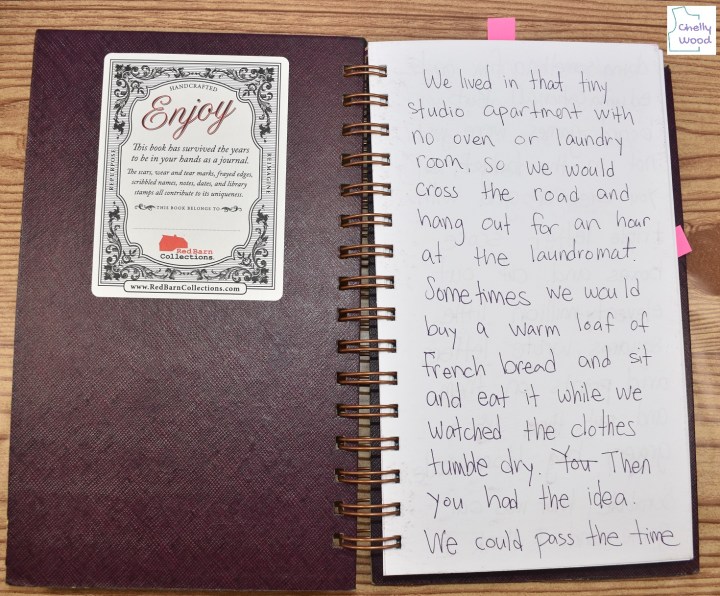 HANDCRAFTED
Enjoy
REPURPOSE
REIMAGINE
This book has survived the years
to be in your hands as a journal.
The scars, wear and tear marks, frayed edges,
scribbled names, notes, dates, and library
stamps all contribute to its uniqueness.
THIS BOOK BELONGS TO
RedBarn
Collections
www.RedBarnCollections.com
Chelly
Wood
We lived in that tiny
studio apartment with
no oven or laundry
room, so we would
cross the road and
hang out for an hour
at the laundromat.
Sometimes we would
buy a warm loaf of
french bread and sit
and eat it while we
watched the clothes
tumble dry. You Then
you had the idea.
We could pass the time